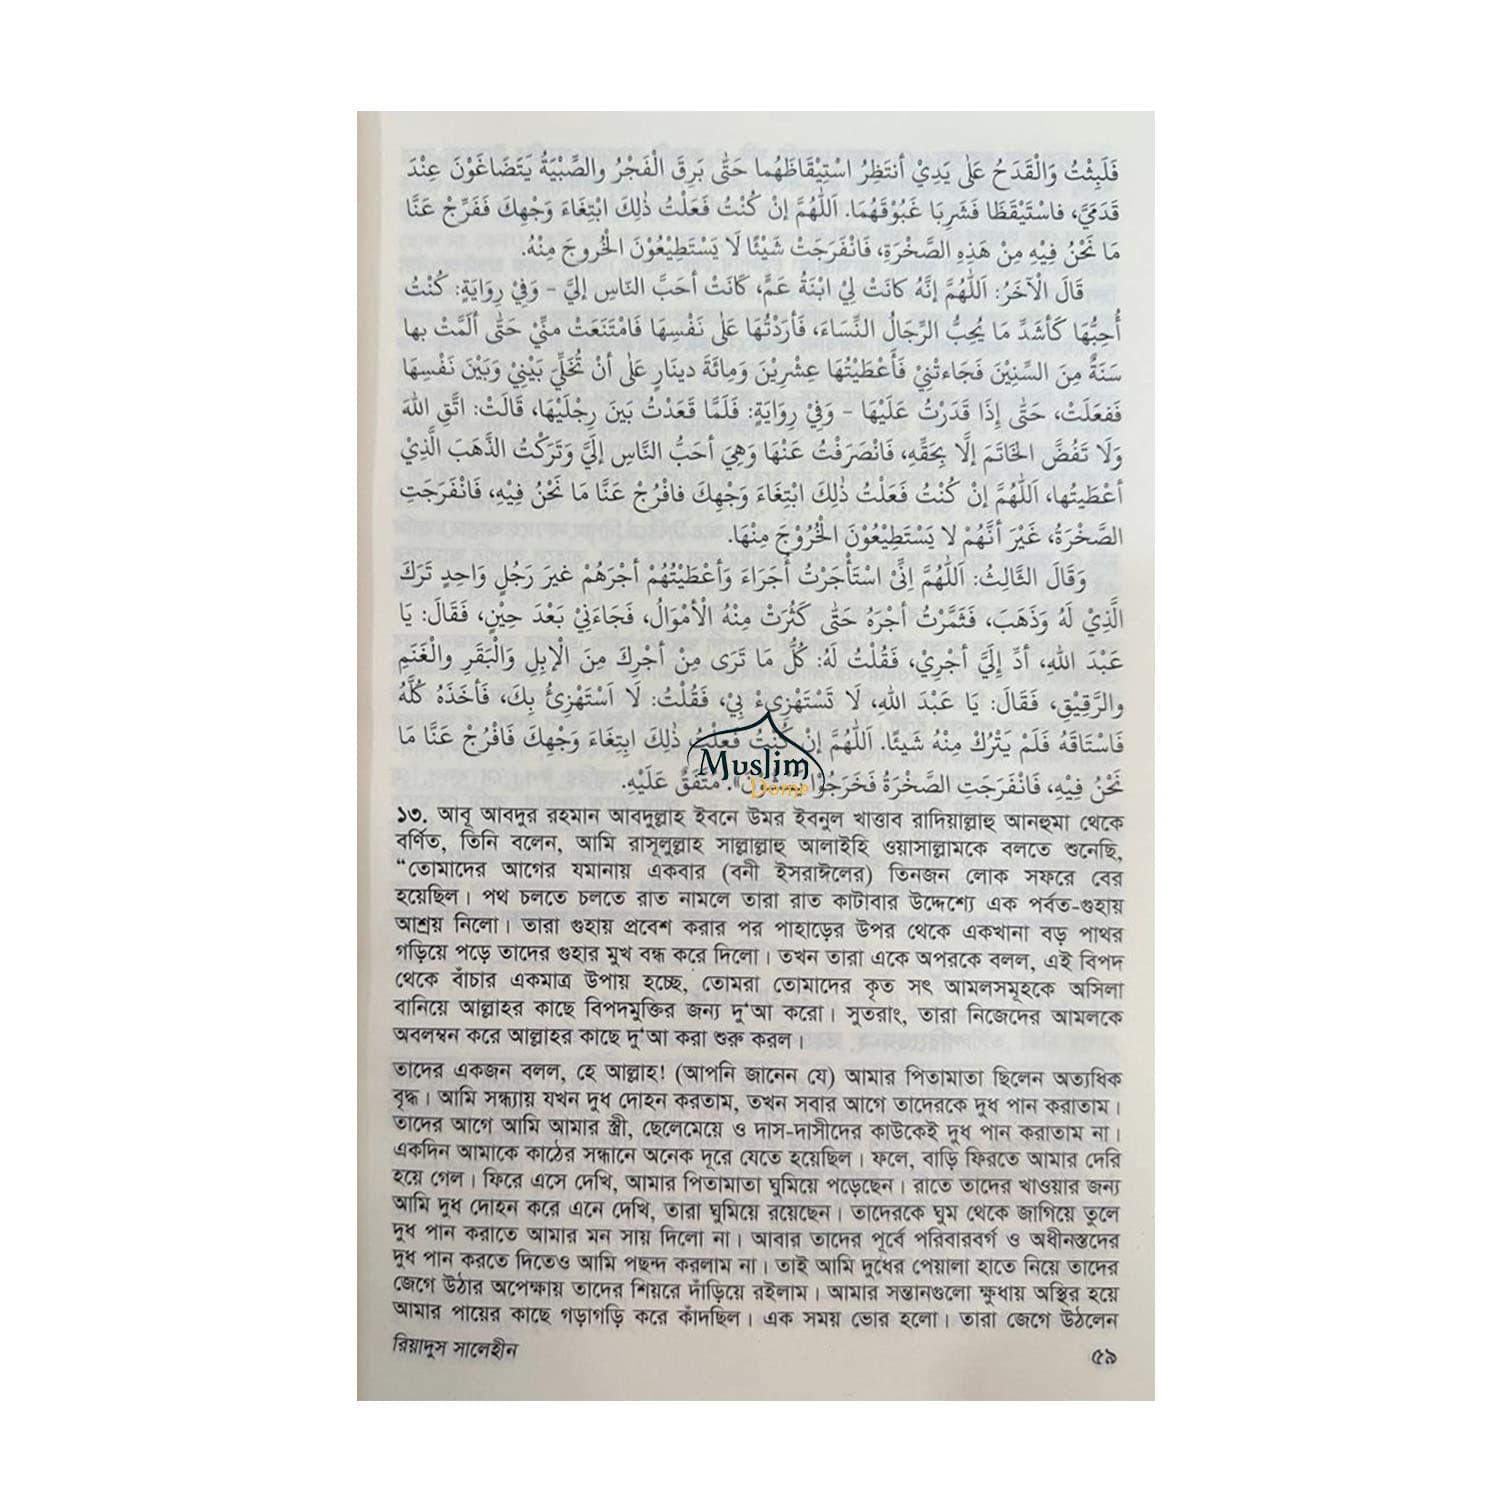 فَلَبِثْتُ وَالْقَدَحُ عَلٰى يَدِيْ أنتَظِرُ اسْتِيْقَاظَهُما حَتّٰى بَرِقَ الْفَجْرُ والصِّبْيَةُ يَتَضَاغَوْنَ عِنْدَ
قَدَمَيَّ، فاسْتَيْقَظَا فَشَرِبَا غَبُوْقَهُمَا. اَللّٰهُمَّ إنْ كُنْتُ فَعَلْتُ ذٰلِكَ ابْتِغَاءَ وَجْهِكَ فَفَرِّجْ عَنَّا
مَا نَحْنُ فِيْهِ مِنْ هَذِهِ الصَّخْرَةِ، فَانْفَرَجَتْ شَيْئًا لَا يَسْتَطِيْعُوْنَ الْخُروجَ مِنْهُ.
قَالَ الْآخَرُ: اَللّٰهُمَّ إنَّهُ كانَتْ لِيْ ابْنَةُ عَمٍّ، كَانَتْ أحَبَّ النّاسِ إليَّ – وَفِيْ رِوَايَةٍ: كُنْتُ
أُحِبُّهَا كَأشَدِّ مَا يُحِبُّ الرِّجَالُ النِّسَاءَ، فَأرَدْتُهَا عَلٰى نَفْسِهَا فَامْتَنَعَتْ منِّيْ حَتّٰى ألَمَّتْ بها
سَنَةٌ مِنَ السِّنِيْنَ فَجَاءتْنِيْ فَأَعْطَيْتُهَا عِشْرِيْنَ وَمِائَةَ دينَارٍ عَلٰى أنْ تُخَلِّيَ بَيْنِيْ وَبَيْنَ نَفْسِهَا
فَفعَلَتْ، حَتّٰى إِذَا قَدَرْتُ عَلَيْهَا – وَفِيْ رِوَايَةٍ: فَلَمَّا قَعَدْتُ بَينَ رِجْلَيْهَا، قَالَتْ: اتَّقِ اللهَ
وَلَا تَفُضَّ الخَاتَمَ إلَّا بِحَقِّهِ، فَانْصَرَفْتُ عَنْهَا وَهِيَ أحَبُّ النَّاسِ إليَّ وَتَرَكْتُ الذَّهَبَ الَّذِيْ
أعْطَيتُها، اَللّٰهُمَّ إنْ كُنْتُ فَعَلْتُ ذٰلِكَ ابْتِغَاءَ وَجْهِكَ فافْرُجْ عَنَّا مَا نَحْنُ فِيْهِ، فَانْفَرَجَتِ
الصَّخْرَةُ، غَيْرَ أنَّهُمْ لا يَسْتَطِيْعُوْنَ الْخُرُوْجَ مِنْهَا.
وَقَالَ الثَّالِثُ: اَللّٰهُمَّ اِنِّىْ اسْتَأْجَرْتُ أُجَرَاءَ وَأعْطَيْتُهُمْ أجْرَهُمْ غيرَ رَجُلٍ وَاحِدٍ تَرَكَ
الَّذِيْ لَهُ وَذَهَبَ، فَثَمَّرْتُ أجْرَهُ حَتّٰى كَثُرَتْ مِنْهُ الْأمْوَالُ، فَجَاءَنِيْ بَعْدَ حِيْنٍ، فَقَالَ: يَا
عَبْدَ اللهِ، أدِّ إِلَيَّ أجْرِيْ، فَقُلْتُ لَهُ: كُلُّ مَا تَرَى مِنْ أجْرِكَ مِنَ الْإبِلِ وَالْبَقَرِ والْغَنَمِ
والرَّقِيْقِ، فَقَالَ: يَا عَبْدَ اللهِ، لَا تَسْتَهْزِىءْ بِيْ، فَقُلْتُ: لَا اَسْتَهْزِئُ بِكَ، فَأخَذَهُ كُلَّهُ
فَاسْتَاقَهُ فَلَمْ يَتْرُكْ مِنْهُ شَيئًا. اَللّٰهُمَّ إنْ كُنْتُ فَعَلْتُ ذٰلِكَ ابتِغَاءَ وَجْهِكَ فَافْرُجْ عَنَّا مَا
نَحْنُ فِيْهِ، فَانْفَرَجَتِ الصَّخْرَةُ فَخَرَجُوْا مُتَّفَقٌ عَلَيْهِ.
Muslim
Dome
১৩. আবূ আবদুর রহমান আবদুল্লাহ ইবনে উমর ইবনুল খাত্তাব রাদিয়াল্লাহু আনহুমা থেকে
বর্ণিত, তিনি বলেন, আমি রাসূলুল্লাহ সাল্লাল্লাহু আলাইহি ওয়াসাল্লামকে বলতে শুনেছি,
“তোমাদের আগের যমানায় একবার (বনী ইসরাঈলের) তিনজন লোক সফরে বের
হয়েছিল। পথ চলতে চলতে রাত নামলে তারা রাত কাটাবার উদ্দেশ্যে এক পর্বত-গুহায়
আশ্রয় নিলো। তারা গুহায় প্রবেশ করার পর পাহাড়ের উপর থেকে একখানা বড় পাথর
গড়িয়ে পড়ে তাদের গুহার মুখ বন্ধ করে দিলো। তখন তারা একে অপরকে বলল, এই বিপদ
থেকে বাঁচার একমাত্র উপায় হচ্ছে, তোমরা তোমাদের কৃত সৎ আমলসমূহকে অসিলা
বানিয়ে আল্লাহর কাছে বিপদমুক্তির জন্য দু‘আ করো। সুতরাং, তারা নিজেদের আমলকে
অবলম্বন করে আল্লাহর কাছে দু‘আ করা শুরু করল।
তাদের একজন বলল, হে আল্লাহ! (আপনি জানেন যে) আমার পিতামাতা ছিলেন অত্যধিক
বৃদ্ধ। আমি সন্ধ্যায় যখন দুধ দোহন করতাম, তখন সবার আগে তাদেরকে দুধ পান করাতাম।
তাদের আগে আমি আমার স্ত্রী, ছেলেমেয়ে ও দাস-দাসীদের কাউকেই দুধ পান করাতাম না।
একদিন আমাকে কাঠের সন্ধানে অনেক দূরে যেতে হয়েছিল। ফলে, বাড়ি ফিরতে আমার দেরি
হয়ে গেল। ফিরে এসে দেখি, আমার পিতামাতা ঘুমিয়ে পড়েছেন। রাতে তাদের খাওয়ার জন্য
আমি দুধ দোহন করে এনে দেখি, তারা ঘুমিয়ে রয়েছেন। তাদেরকে ঘুম থেকে জাগিয়ে তুলে
দুধ পান করাতে আমার মন সায় দিলো না। আবার তাদের পূর্বে পরিবারবর্গ ও অধীনস্তদের
দুধ পান করতে দিতেও আমি পছন্দ করলাম না। তাই আমি দুধের পেয়ালা হাতে নিয়ে তাদের
জেগে উঠার অপেক্ষায় তাদের শিয়রে দাঁড়িয়ে রইলাম। আমার সন্তানগুলো ক্ষুধায় অস্থির হয়ে
আমার পায়ের কাছে গড়াগড়ি করে কাঁদছিল। এক সময় ভোর হলো। তারা জেগে উঠলেন
রিয়াদুস সালেহীন
৫৯